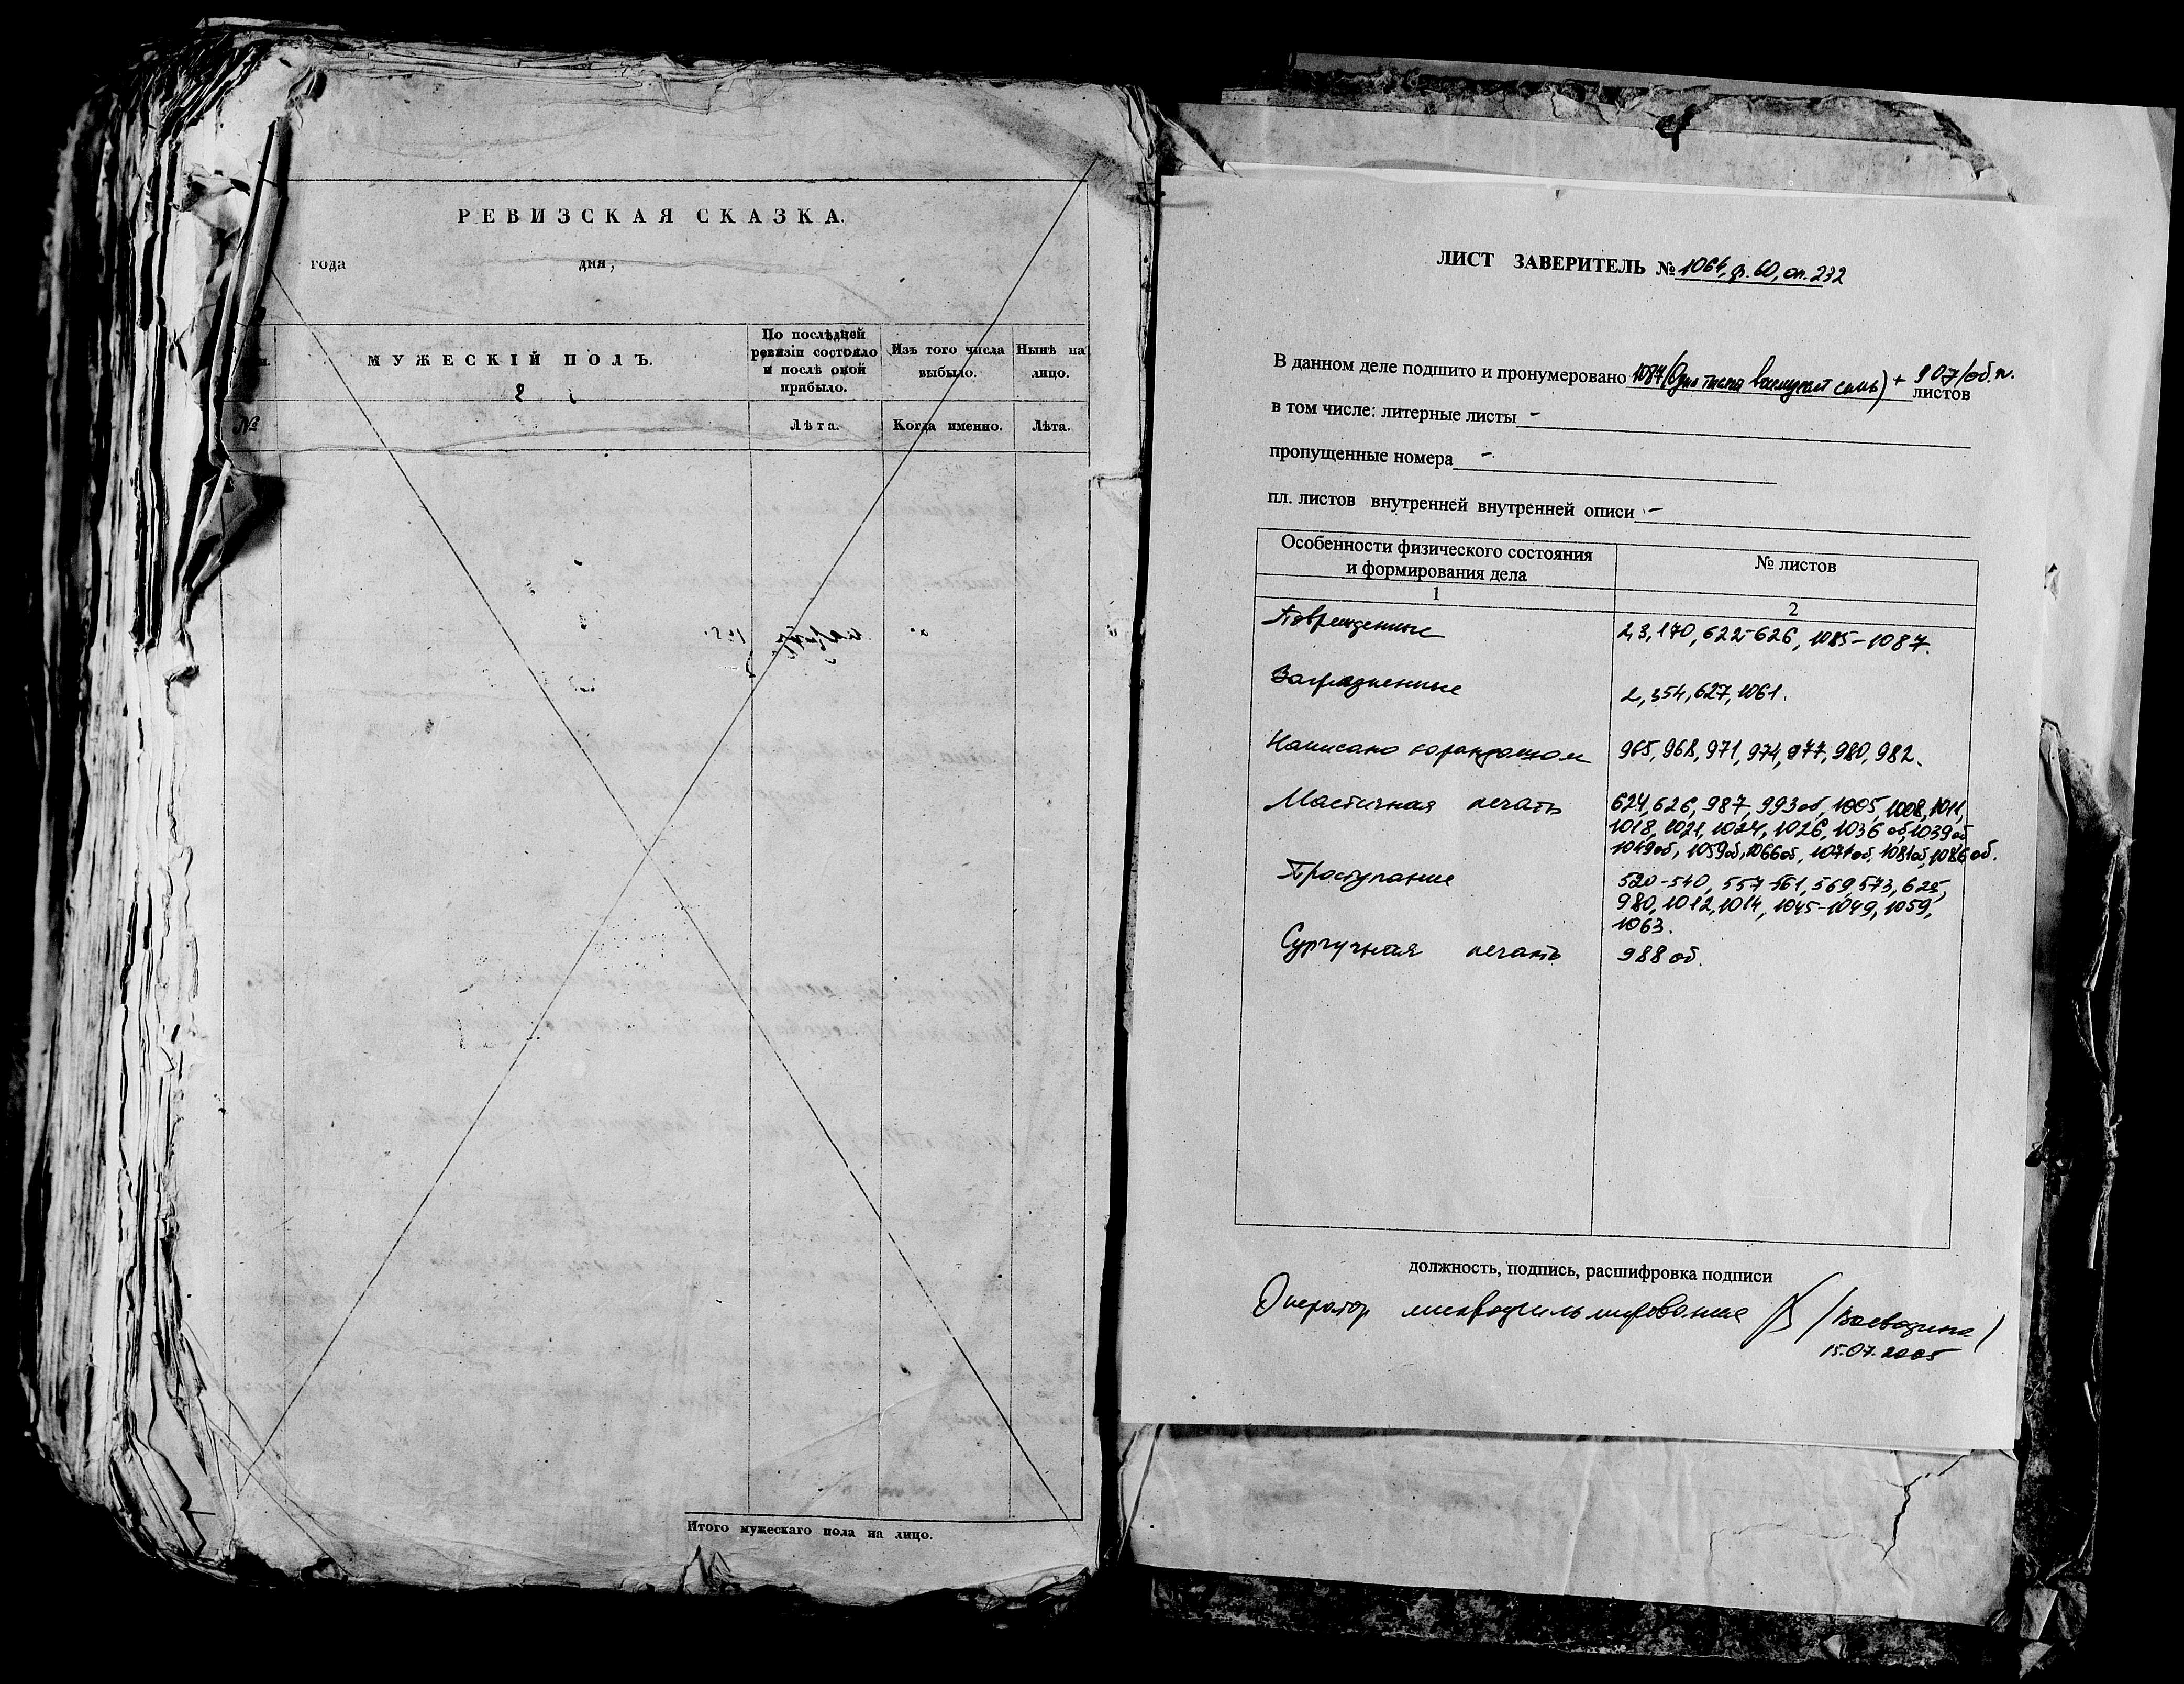 РЕВИЗСКАЯ СКАЗКА.
года дня,
МУЖЕСКІЙ ПОЛЪ.
По послѣдней
ревизіи состояло
и послѣ оной
прибыло.
Изъ того числа
выбыло.
Нынѣ на
лицо.
№
Лѣта.
Когда именно.
Лѣта.
Итого мужескаго пола на лицо.
ЛИСТ ЗАВЕРИТЕЛЬ № 1064, ф. 60, оп. 232
В данном деле подшито и пронумеровано 1087 (Одна тысяча восемьдесят семь) + 907/об.н.
листов
в том числе: литерные листы -
пропущенные номера -
пл. листов внутренней внутренней описи -
Особенности физического состояния
и формирования дела
№ листов
1
2
Повреждённые 2,3,170,622-626,1085-1087.
Загрязненные 2,354,627,1061.
Написано карандашом 965,968,971,974,977,980,982.
Мастичная печать 624,626,987,993об,1005,1008,1011,
1018,1021,1024,1026,1036об,1039об
1049об,1059об,1066об,1071об,1081об,1086об.
Проступание 520-540,557-561,569,573,625,
980,1012,1014,1045-1049,1059,
1063.
Сургучная печать 988об.
должность, подпись, расшифровка подписи
Оператор микрофильмирования /Воеводина/
15.07.2005